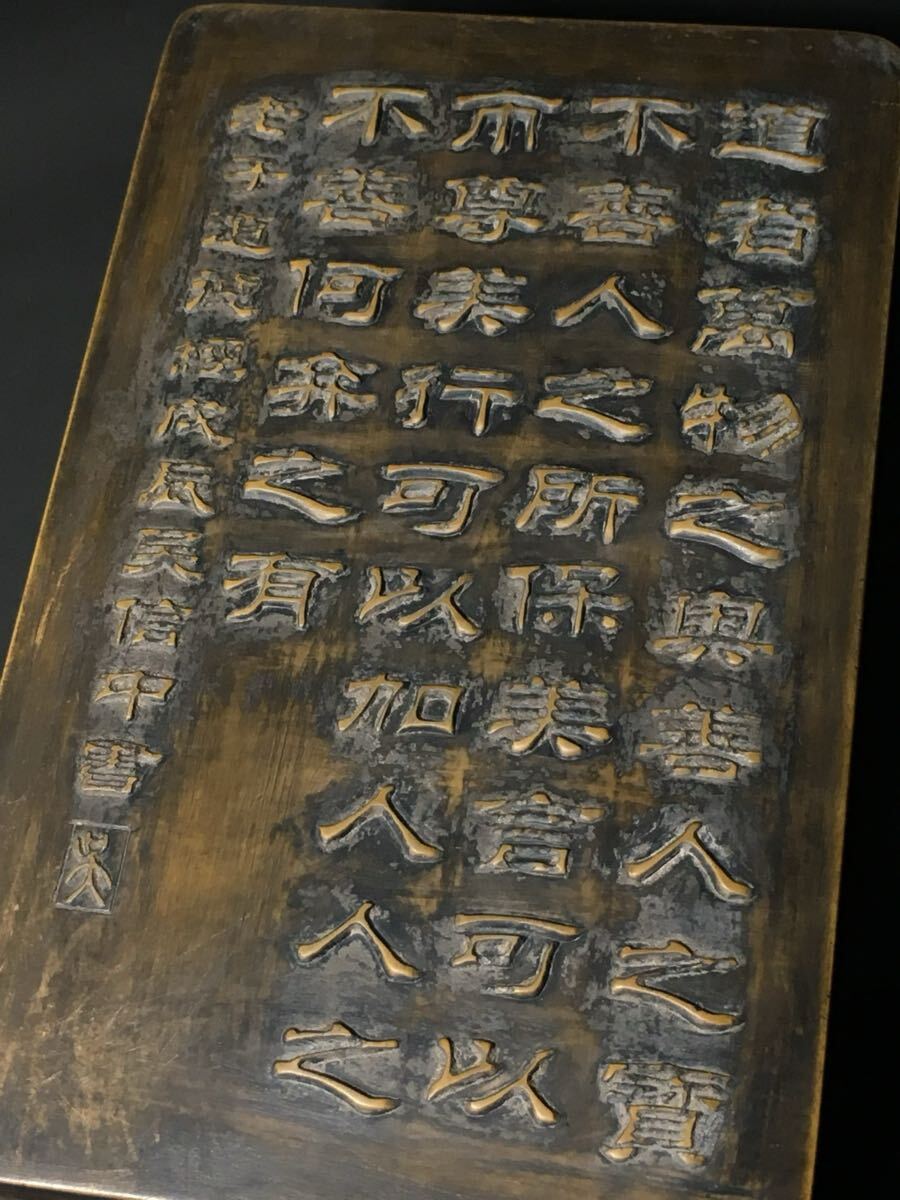 道者萬物之奧善人之寶
不善人之所保美言可以
市尊美行可以加人人之
不善何棄之有
老子道德經戊辰吴信中書
吴